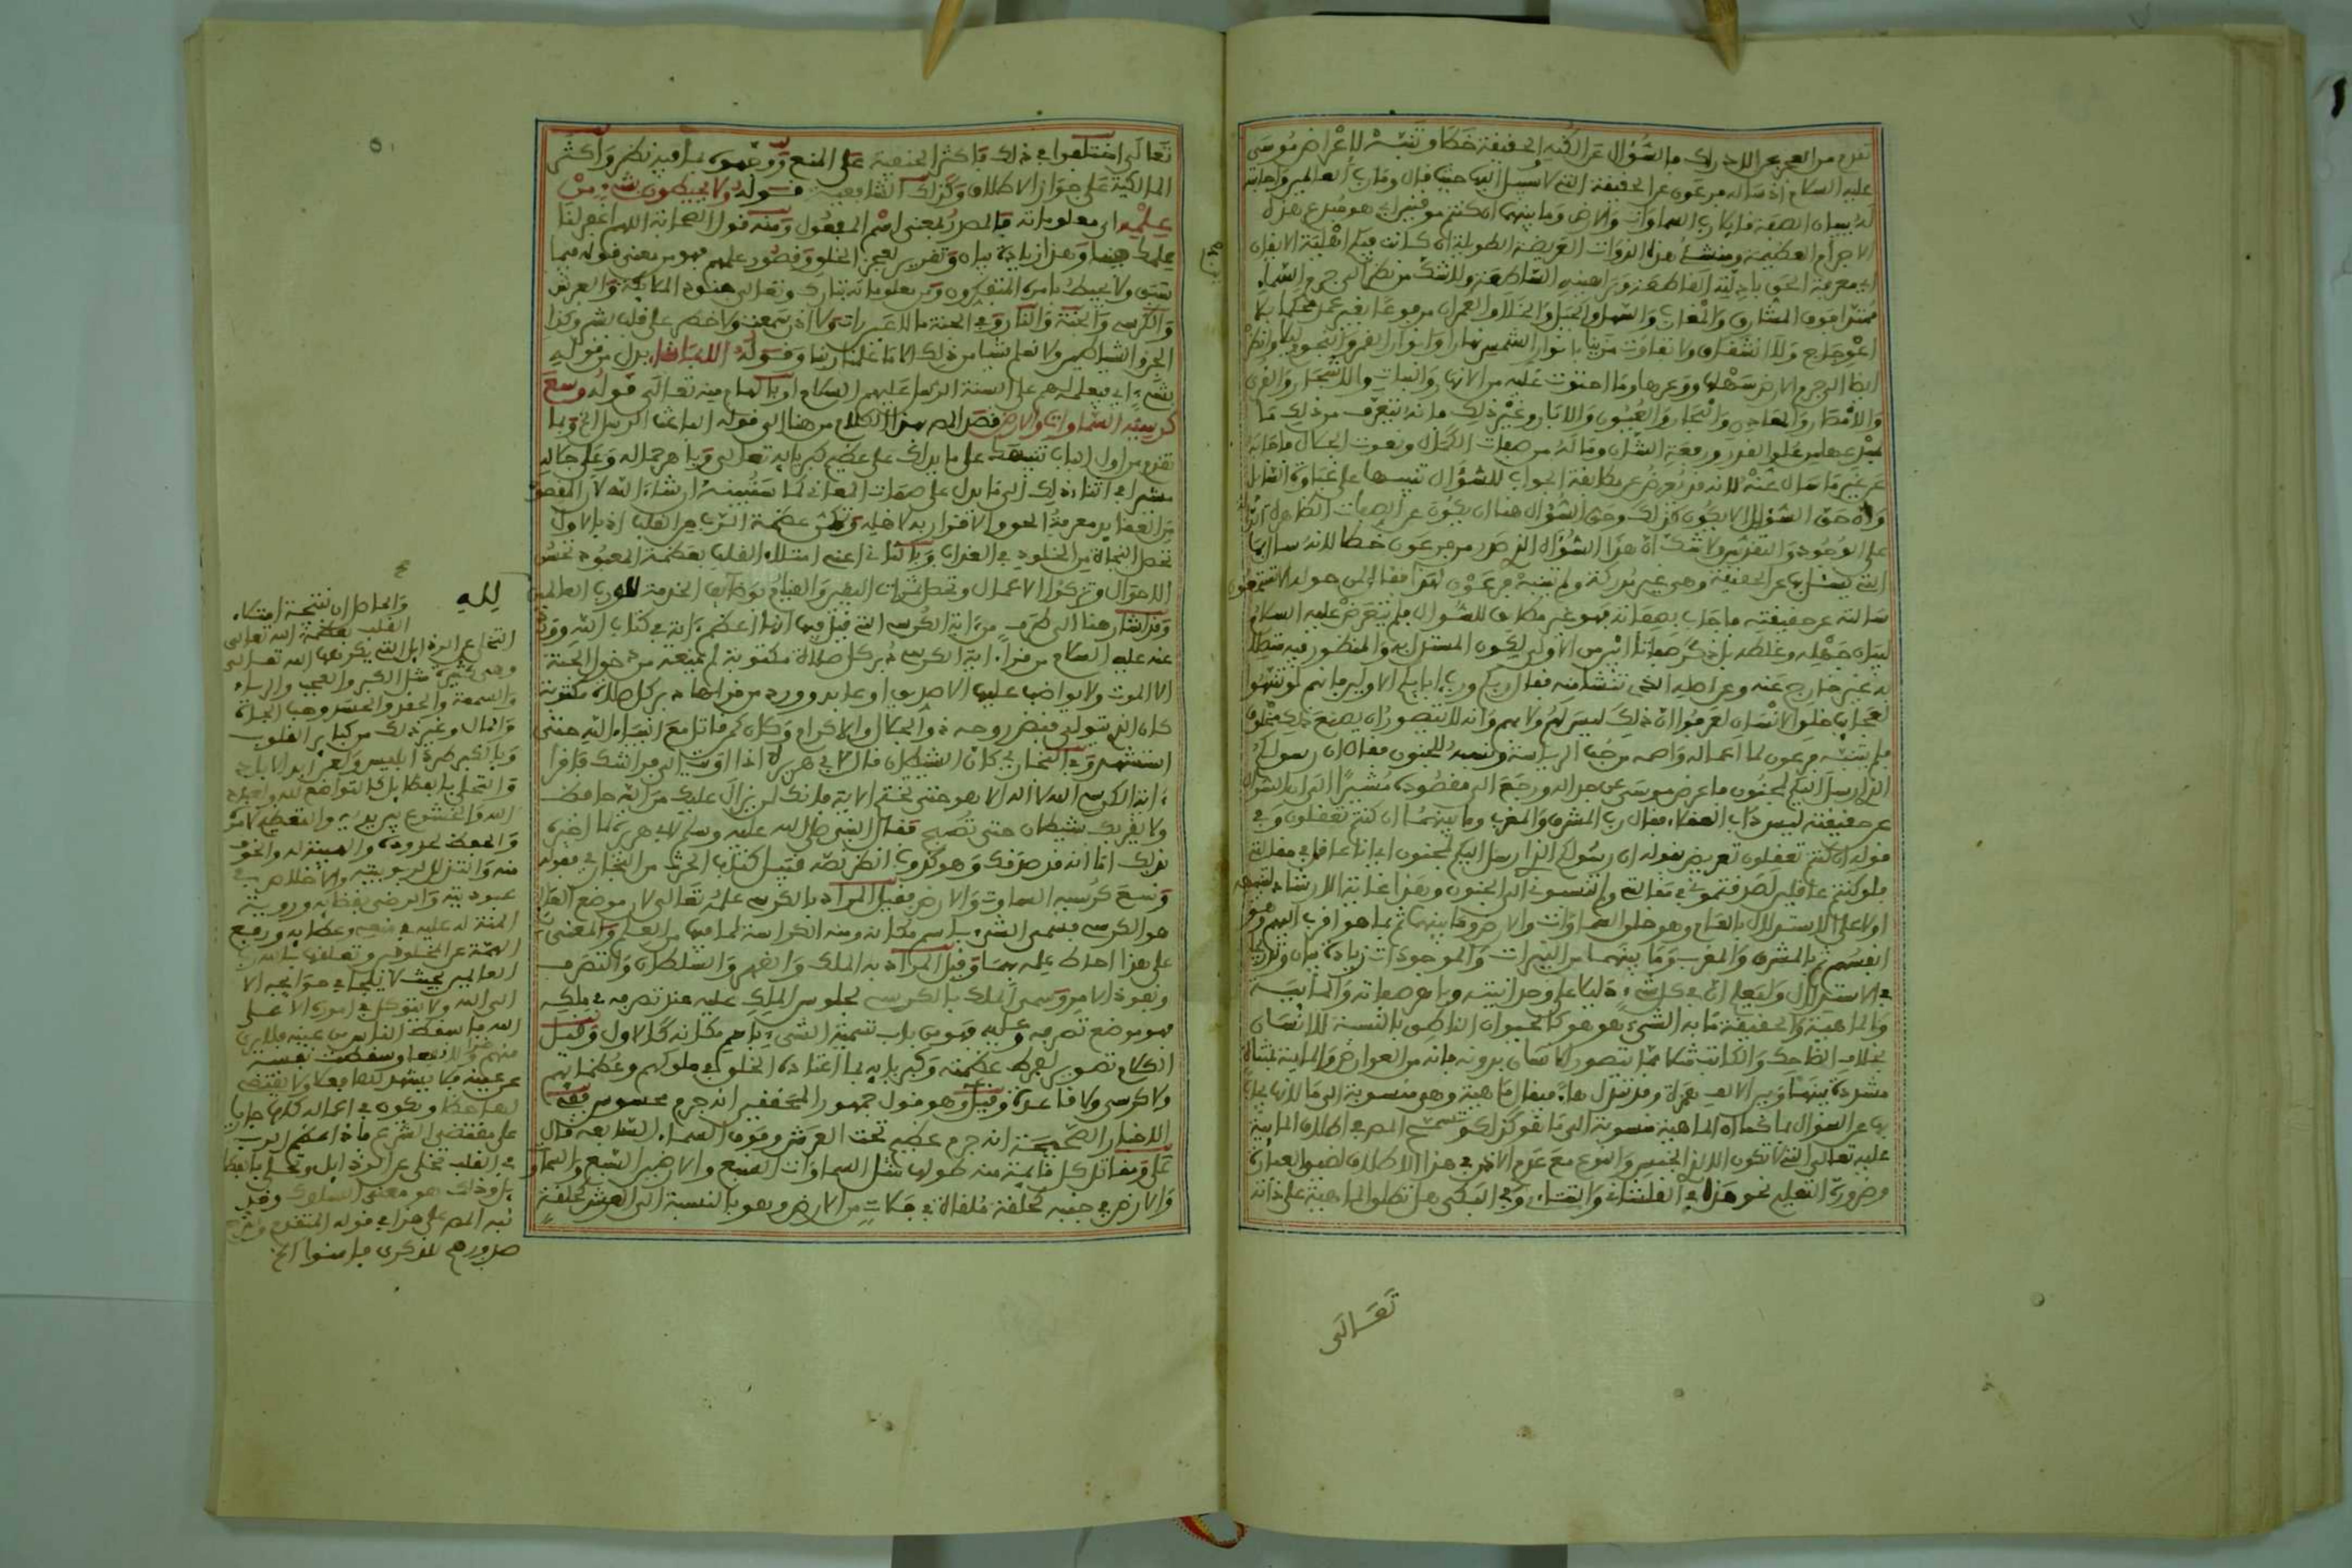 تقدم من العجز عن الادراك فالسؤال عن الكنه الحقيقة خطا وتنبه لاعراض موسى
عليه السلام اذ ساله فرعون عن الحقيقة التي لا سبيل اليها حيث قال وما رب العالمين واجابته
له ببيان الصفة فقال رب السماوات والارض وما بينهما ان كنتم موقنين اي هو مبدع هذه
الاجرام العظيمة ومنشئ هذه الذوات العريضة الطويلة ان كانت فيكم اهلية الايقان
اي معرفة الحق بادلته القاطعة وبراهينه الساطعة ولا شك من نظر الى جرم السماء
اعوجاج ولا انشقاق ولا تفاوت مزينا بانوار الشمس نهارا وانوار القمر والنجوم ليلا وانظر
ايضا الى جرم الارض سهلها ووعرها وما احتوت عليه من الانهار وانبات والاشجار والقرى
والامصار والمعادن والبحار والعيون والابار وغير ذلك فانه يتعرف من ذلك ما
مبدعها من علو القدر ورفعة الشان وماله من صفات الكمال ونعوت الجمال فاجابه
عن غير ما سال عنه لانه قد يعرض عن مطابقة الجواب للسؤال تنبيها على غباوة السائل
وان حق السؤال الا يكون كذلك وحق السؤال هنا ان يكون عن الصفات الظاهرة الدالة
على الوجود والتقديس ولا شك ان هذا السؤال الذي صدر من فرعون خطا لانه سال بما
التي يسئل بها عن الحقيقة وهي غير مدركة ولم يتنبه فرعون لهذا فقال لمن حوله الا تستمعون
سالته عن حقيقته فاجاب بصفاته فهو غير مطابق للسؤال فلم يتعرض عليه السلام
لبيان جهله وغلطه بل ذكر صفة اابين من الاولى لكون المستدل به والمنظور فيه متصلا
به غير خارج عنه وعن اصله الذي تنشا منه فقال ربكم ورب ابايكم الاولين فانهم لو تنبهوا
لعجايب خلق الانسان لعرفوا ان ذلك ليس لهم ولا بهم وانه لا يتصور ان يصنع ذلك مخلوق
فلم يتنبه فرعون لما اعماه واصمه من حب الرياسة ونسبه للجنون فقال ان رسولكم
الذي ارسل اليكم لمجنون فاعرض موسى عن جداله ورجع الى مقصوده مشيرا الى ان السؤال
عن حقيقته ليس داب العقلاء فقال رب المشرق والمغرب وما بينهما ان كنتم تعقلون وفي
قوله ان كنتم تعقلون تعريض بقوله ان رسولكم الذي ارسل اليكم لمجنون اي انا عاقل في مقالتي
فلو كنتم عاقلين لصدقتموني في مقالتي ولم تنسبوني الى الجنون وهذا غاية الارشاد لتنبيههم
اولا على الاستدلال بالعام وهو خلق السماوات والارض وما بينهما ثم بما هو اقرب اليهم وهو
انفسهم ثم بالمشرق والمغرب وما بينهما من النيرات والموجودات زيادة بيان وتدريجا
في الاستدلال وليعلم ان في كل شيء دليلا على وحدانيته وباهر صفاته والمائية
والماهية والحقيقة ما به الشيء هو هو كالحيوان الناطق بالنسبة للانسان
بخلاف الضاحك والكاتب مثلا مما يتصور الانسان بدونه فانه من العوارض والمائية بمثناة
مشددة بينها وبين الالف همزة وقد تبدل هاء فيقال ماهية وهي منسوبة الى ما لانها يجاب
بها عن السؤال بما كما ان الماهية منسوبة الى ما هو كذا لكن تسمح المص في اطلاق المائية
عليه تعالى التي لا تكون الا لذي الجنس والنوع مع عدم الاذن في هذا الاطلاق لضيق العبارة
وضرورة التعليم نحو هذا في القلشاني والتتاءي وفي السكي هل تطلق الماهية على ذاته
تعالى
تعالى اختلفوا في ذلك فاكثر الحنفية على المنع ووجهوه بما فيه نظر واكثر
المالكية على جواز الاطلاق وكذلك الشافعية قوله ولا يحيطون بشيء من
علمه اي معلوماته فالمصدر بمعنى اسم المفعول ومنه قول الصحابة اللهم اغفر لنا
علمك فينا وهذا زيادة بيان وتقرير لعجز الخلق وقصور علمهم فهو من معنى قوله فيما
سبق ولا يحيط بامره المتفكرون ومن معلوماته تبارك وتعالى جنود الملائكة والعرش
والكرسي والجنة والنار وفي الجنة ما لا عين رات ولا اذن سمعت ولا خطر على قلب بشر وكذا
الجن والشياطين ولا نعلم شيا من ذلك الا ما علمنا ربنا وقوله الا بما شاء بدل من قوله
بشيء اي بتعليمه لهم على السنة الرسل عليهم السلام او بالهام منه تعالى قوله وسع
كرسيه السماوات والارض قصد المص بهذا الكلام من هنا الى قوله الباعث الرسل الخ وبما
تقدم من اول الباب تنبيهك على ما يدلك على عظيم كبريائه تعالى وباهر جماله وعلى جلاله
مشيرا في اثناء ذلك الى ما يدل على صفات المعاني كما ستبينه ان شاء الله لان المقصود
من العقايد معرفة الحق والاقرار به لاهله وتمكن عظمة الرب من القلب اذ بالاول
تحصل النجاة من الخلود في العذاب وبالثاني اعني امتلاء القلب بعظمة المعبود تحسن
الاحوال وتزكوا الاعمال وتحصل ثمرات اليقين والقيام بوظائف الخدمة لله رب العالمين
وقد اشار هنا الى طرف من اية الكرسي التي قيل فيها انها اعظم اية في كتاب الله وورد
عنه عليه السلام من قرا اية الكرسي دبر كل صلاة مكتوبة لم يمنعه من دخول الجنة
الا الموت ولا يواضب عليها الا صديق او عابد وورد من قراها دبر كل صلاة مكتوبة
كان الذي يتولى قبض روحه ذو الجلال والاكرام وكان كمن قاتل مع انبياء الله حتى
استشهد وفي البخاري كان الشيطان قال لابي هريرة اذا اويت الى فراشك فاقرا
اية الكرسي الله لا اله الا هو حتى تختم الاية فانك لن يزال عليك من الله حافظ
ولا يقربك شيطان حتى تصبح فقال النبي صلى الله عليه وسلم لابي هريرة لما اخبره
بذلك اما انه قد صدقك وهو كذوب انظر نصه قبيل كتاب الحرث من البخاري فقوله
وسع كرسيه السماوات والارض فقيل المراد بالكرسي علمه تعالى لان موضع العالم
هو الكرسي فسمي الشيء باسم مكانه ومنه الكراسة لما فيها من العلم والمعنى
على هذا احاط علمه بهما وقيل المراد به الملك والقهر والسلطان والتصرف
ونفوذ الامر وسمي الملك بالكرسي لجلوس الملك عليه عند تصرفه في ملكه
فهو موضع تصرفه وعليه فهو من باب تسمية الشيء باسم مكانه كالاول وقيل
الكلام تصوير لفرط عظمته وكبريايه بما اعتاده الخلق في ملوكهم وعظمائهم
ولا كرسي ولا قاعد وقيل وهو قول جمهور المحققين انه جرم محسوس ففي
الاخبار الصحيحة انه جرم عظيم تحت العرش وفوق السماء السابعة قال
علي ومقاتل كل قايمة منه طولها مثل السماوات السبع والارضين السبع والسماوات
والارض في جنبه كحلقة ملقاة في فلاة من الارض وهو بالنسبة الى العرش كحلقة
لله
والحاصل ان نتيجة امتلاء
القلب بعظمة الله تعالى
التخلي عن الرذايل التي يكرهها الله تعالى
وهي كثيرة مثل الكبر والعجب والرياء
والسمعة والحقد والحسد وحب الجاه
والمال وغير ذلك من كبائر القلوب
وبالكبر طرد ابليس ولعن ابد الاباد
والتحلي بالفضايل كالتواضع لله
الله والخشوع بين يديه والتعظيم لامره
والحفظ لحدوده والهيبة له والخوف
منه والتذلل لربوبيته والاخلاص في
عبوديته والرضى بقضائه ورؤية
المنة له عليه في منعه وعطايه ورفع
الهمة عن المخلوقين وتعلقها بالله رب
العالمين بحيث لا يلجا في حوايجه الا
الى الله ولا يتوكل في اموره الا على
الله فاسقط الناس من عينه فلا يرى
منهم ضرا ولا نفعا وسقطت نفسه
عن عينه فلا يشهد لها فعلا ولا يقتضي
لها حظا ويكون في اعماله كلها جاريا
على مقتضى الشرع فاذا عظم الرب
في القلب تخلى عن الرذايل وتحلى بالفضا
يل وذلك هو معنى السلوك وقد
نبه المص على هذا في قوله المتقدم وشرح
صدورهم للذكرى فامنوا الخ